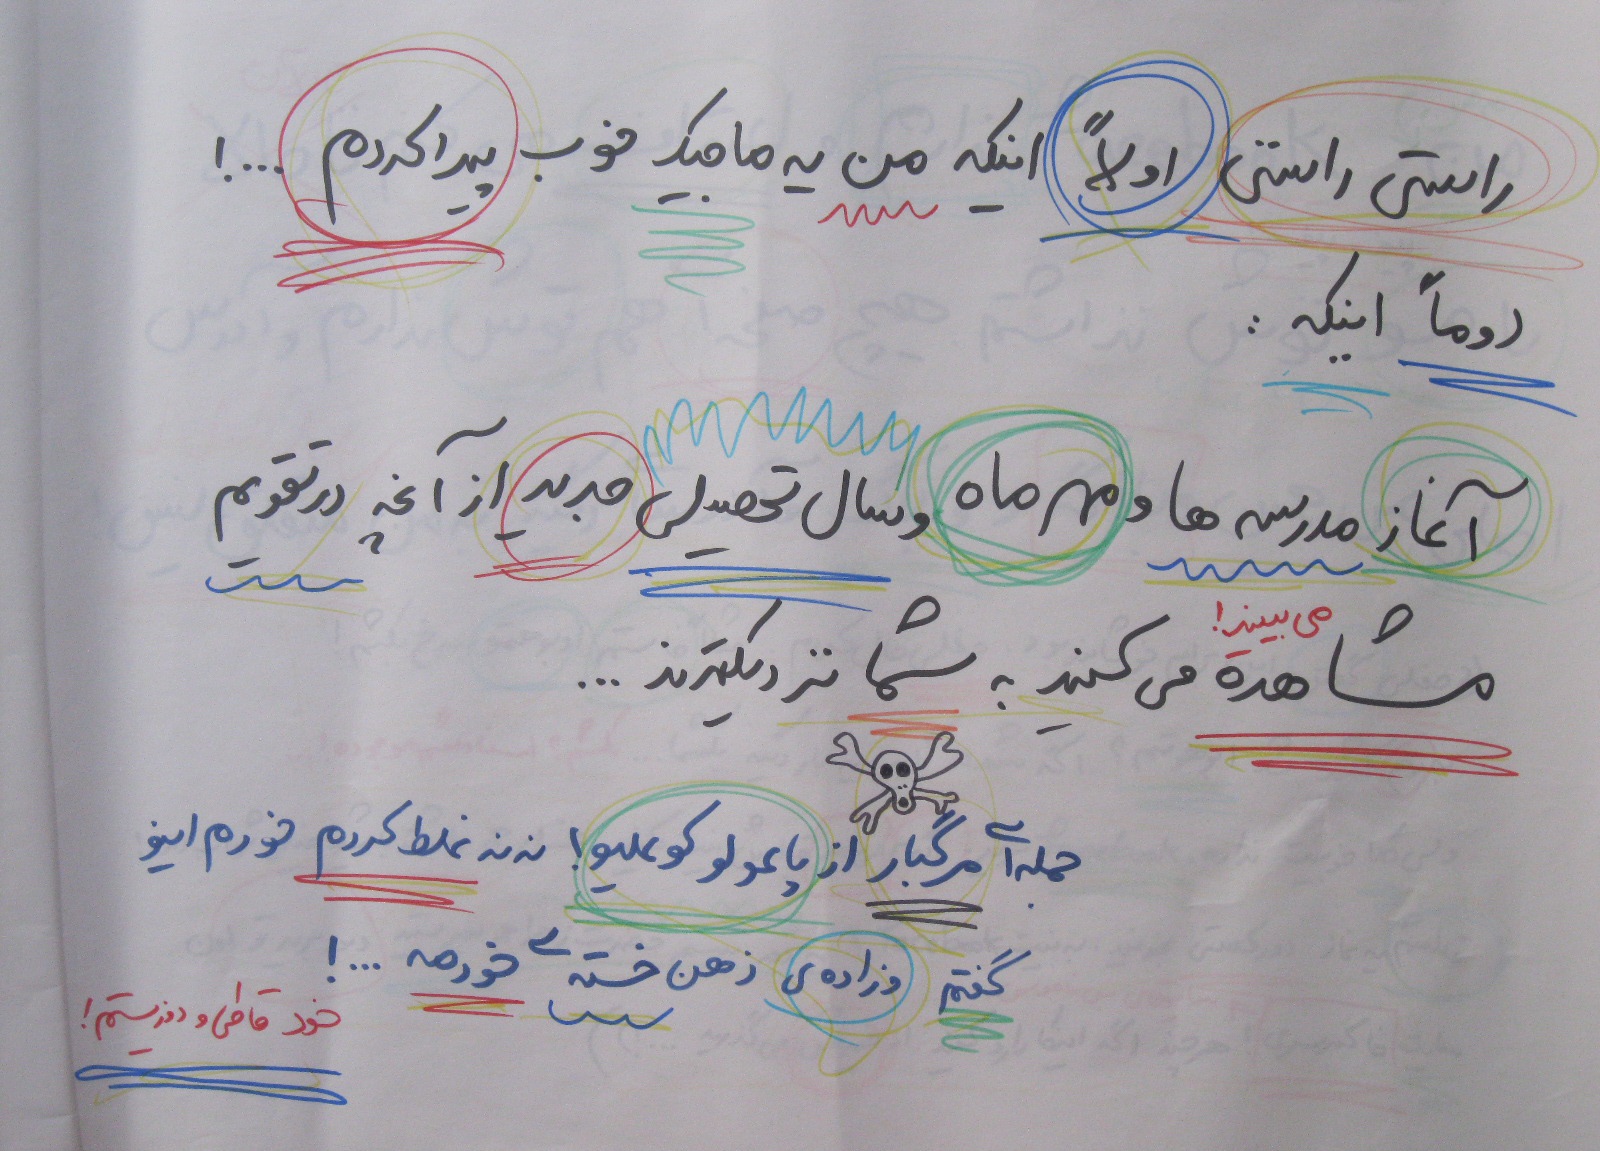 راستی راستی اولاً اینکه من یه ماجیک خوب پیدا کردم ...!
دوماً اینکه :
آغاز مدرسه ها و مهر ماه و سال تحصیلی جدید از آنچه در تقویم
می بینید!
مشاهدة می کنید به شما نزدیکترند ...
جمله‌ای مرگبار از پائولو کوئلیو! نه نه غلط کردم خودم اینو
گفتم زاده‌ی ذهن خسته‌ی خودمه ...!
خود قاطی و درستم!